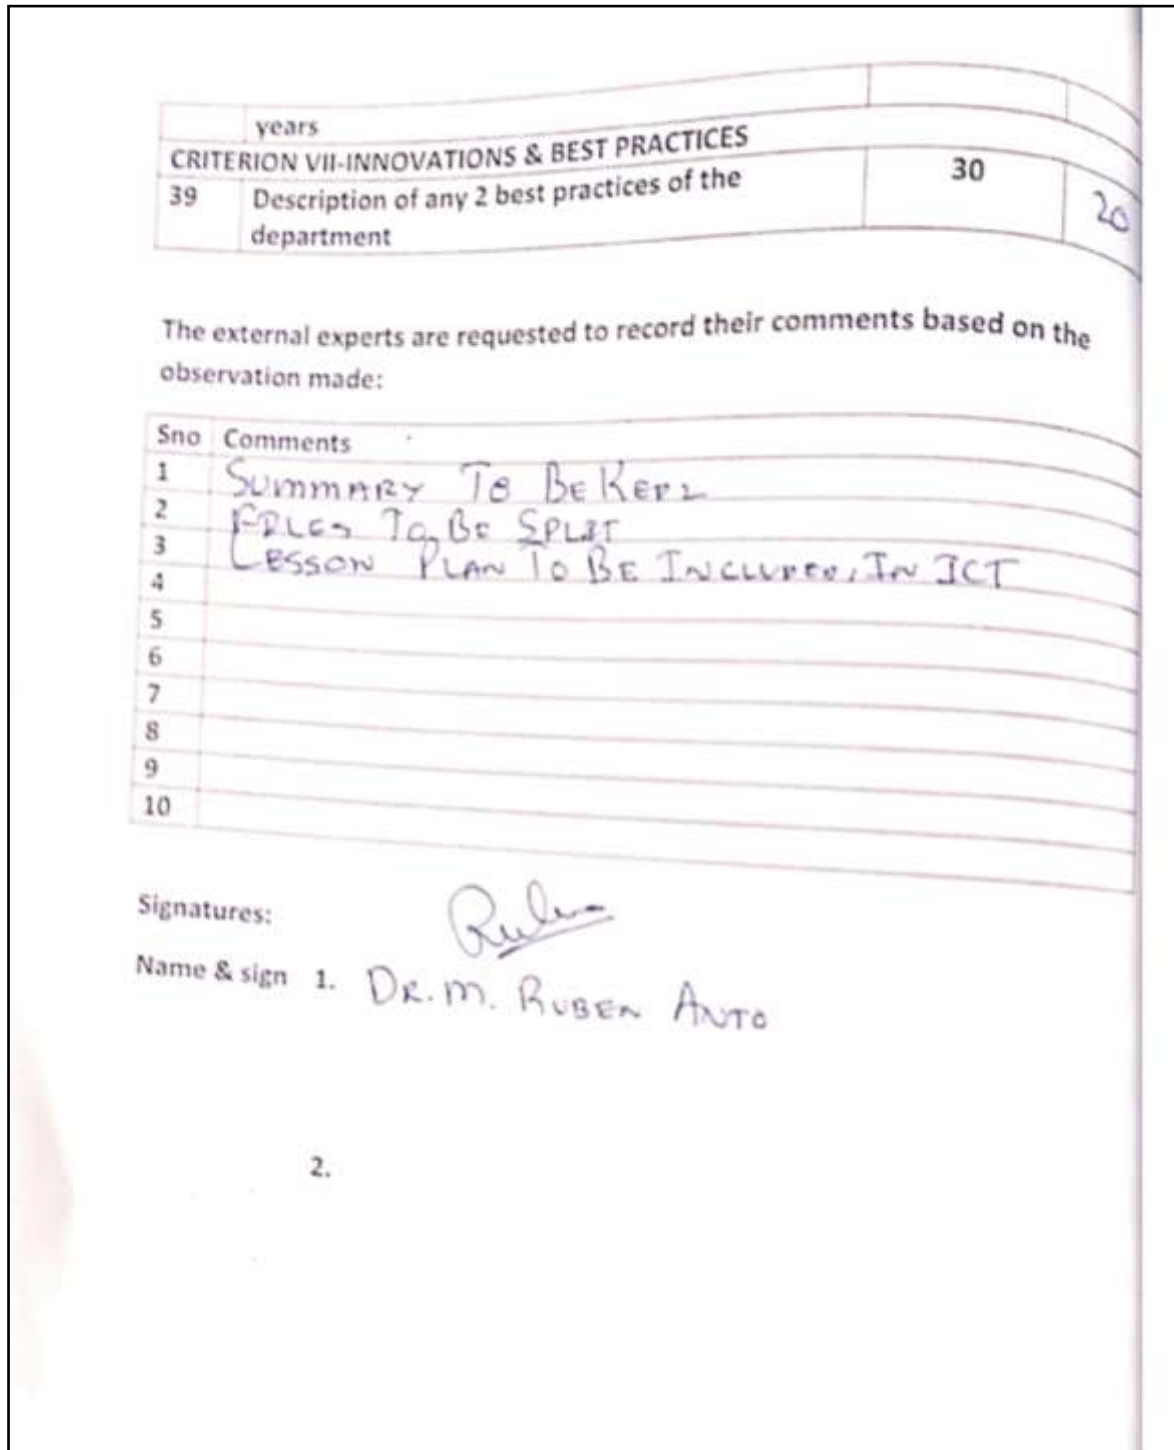 years
CRITERION VII-INNOVATIONS & BEST PRACTICES
39 Description of any 2 best practices of the 30 20
department
The external experts are requested to record their comments based on the
observation made:
Sno Comments
1 SUMMARY TO BE KEPT
2 FILES TO BE SPLIT
3 LESSON PLAN TO BE INCLUDED, IN ICT
4
5
6
7
8
9
10
Signatures:
Name & sign 1. DR. M. RUBEN ANTO
2.